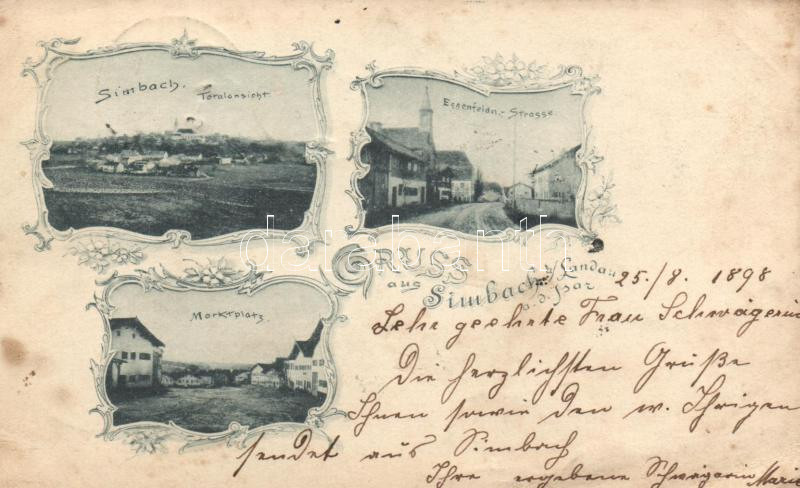 Simbach.
Totalansicht
Eggenfeldn.-Strasse
Marktplatz
GRUSS
aus
Simbach b/Landau
a.d. Isar
25./8. 1898
Sehr geehrte Frau Schwägerin
Die herzlichsten Grüße
Ihnen sowie den w. Ihrigen
sendet aus Simbach
Ihre ergebene Schwägerin Marie
darabanth.com